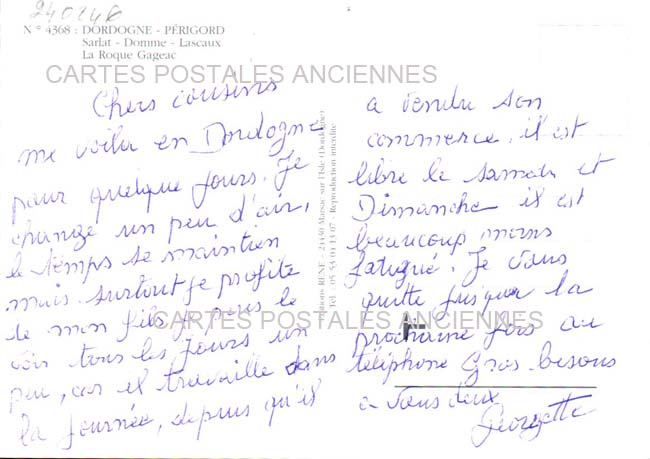 240246
N° 4368 : DORDOGNE - PÉRIGORD
Sarlat - Domme - Lascaux
La Roque Gageac
CARTES POSTALES ANCIENNES
Chers cousins
me voila en Dordogne
pour quelque jours. Je
change un peu d'air,
le temps se maintien
mais surtout je profite
de mon fils je peus le
voir tous les jours un
peu, car il travaille dans
la journée, depuis qu'il
Editions RENE - 24430 Marsac sur l'Isle (Dordogne)
Tel. 05 53 01 13 07 - Reproduction interdite
a vendu son
commerce, il est
libre le samedi et
Dimanche il est
beaucoup moins
fatigué. Je vous
quitte jusqua la
CARTES POSTALES ANCIENNES
prochaine fois au
téléphone Gros bisous
a vous deux
Georgette